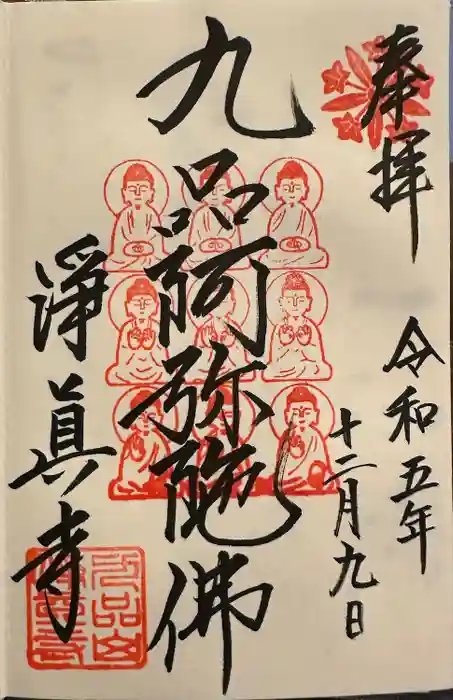 奉拝
令和五年
十二月九日
九品阿弥陀佛
淨真寺